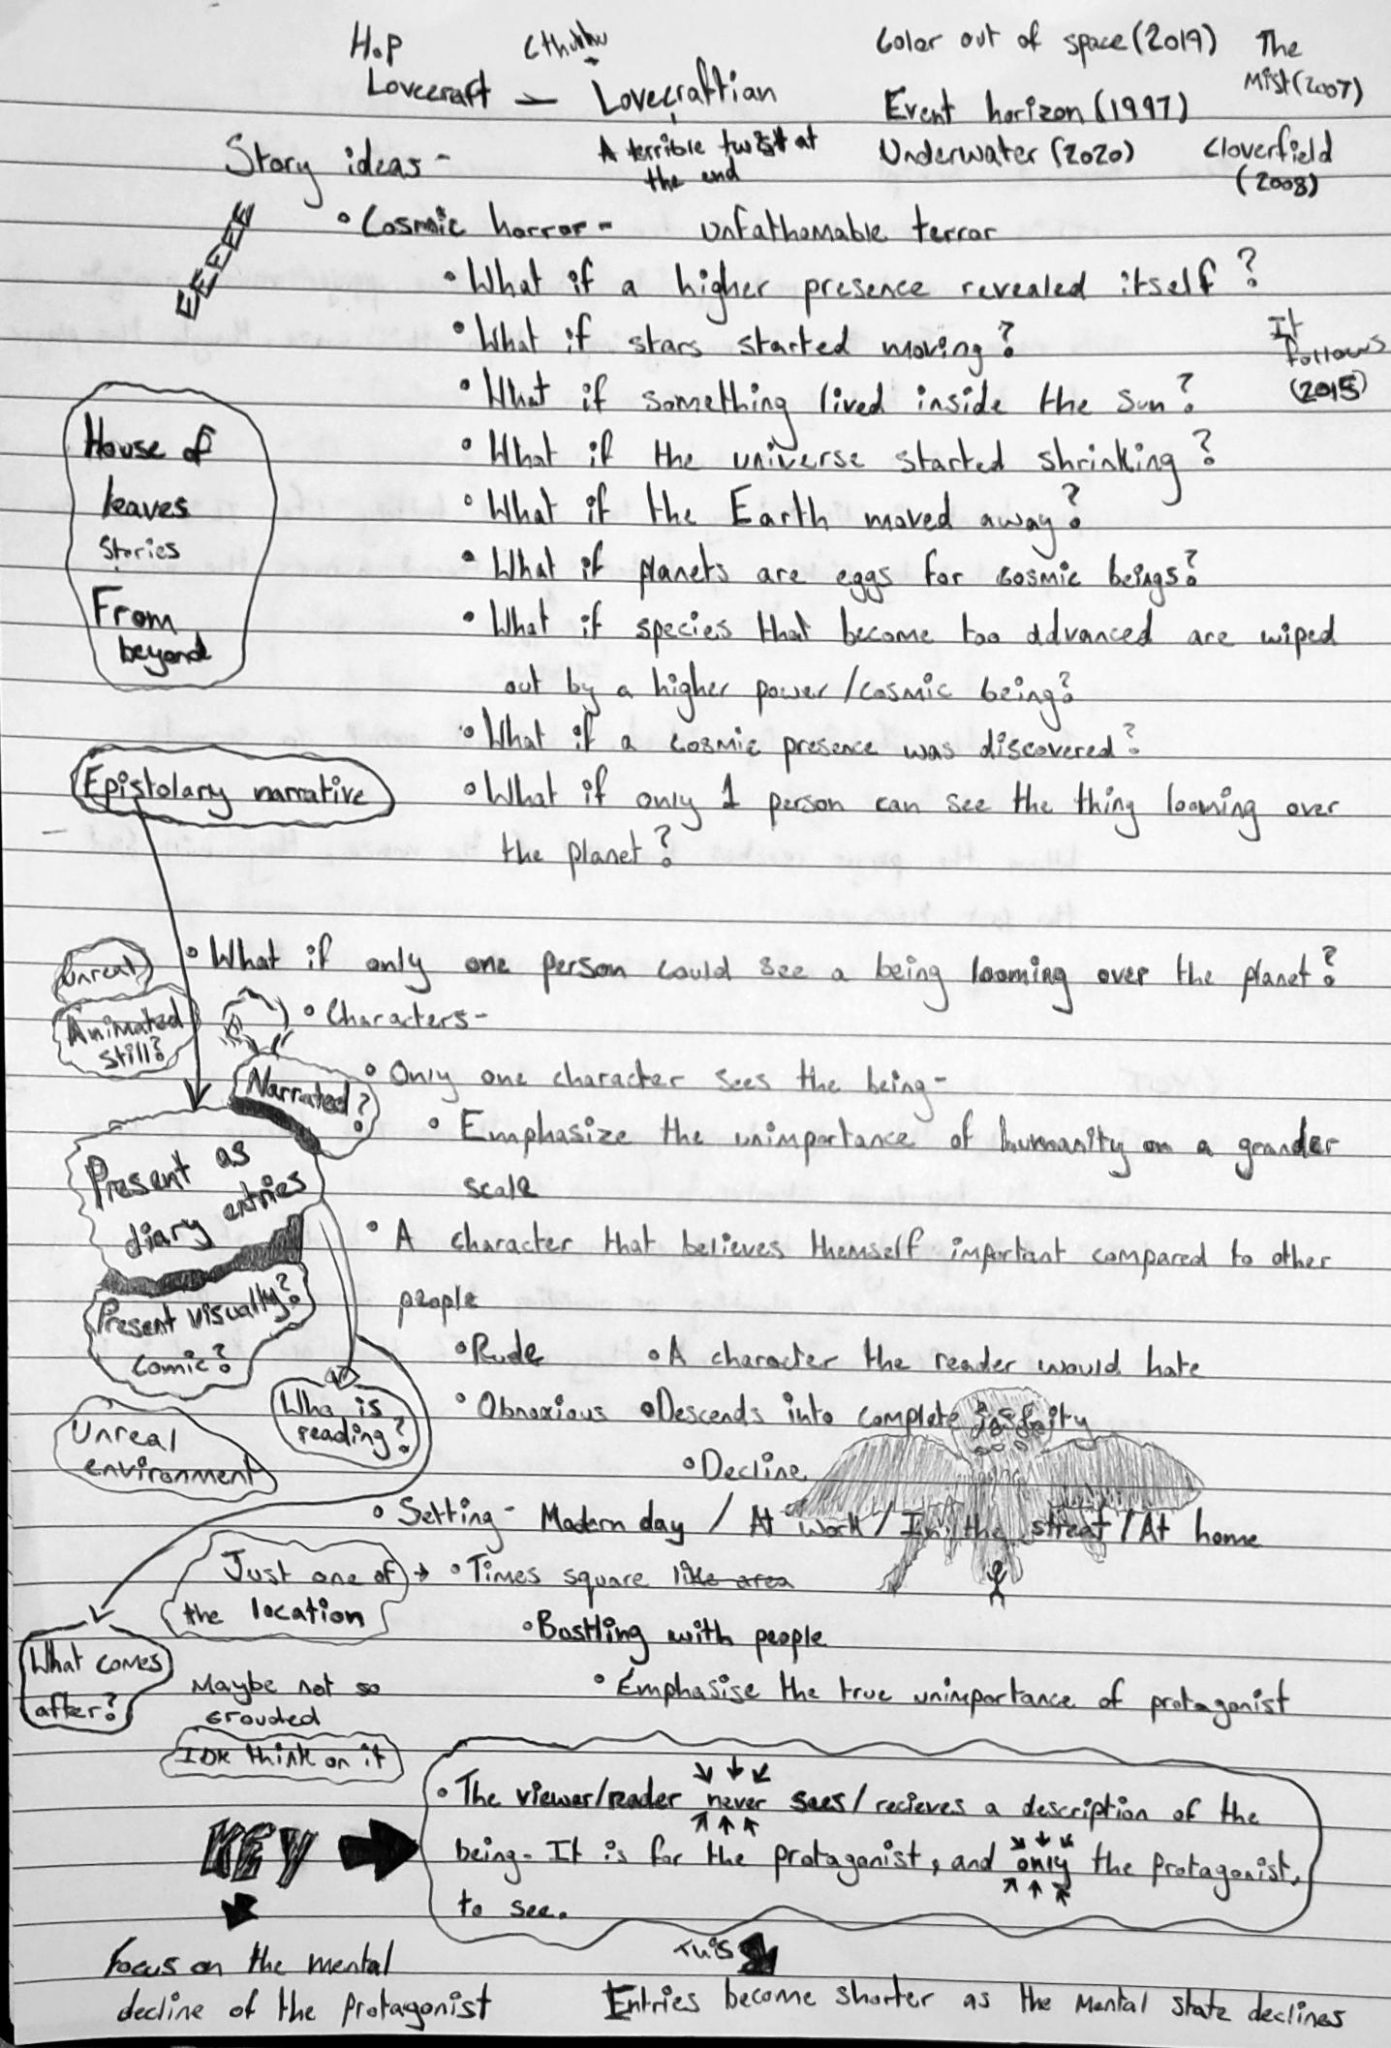 H.P
Lovecraft – Lovecraftian
Cthulhu
A terrible twist at
the end
Color out of space (2019)
The
Mist (2007)
Event horizon (1997)
Underwater (2020)
Cloverfield
(2008)
Story ideas -
EEEEE
• Cosmic horror - unfathomable terror
• What if a higher presence revealed itself?
• What if stars started moving?
It
follows
(2015)
• What if something lived inside the sun?
• What if the universe started shrinking?
• What if the Earth moved away?
• What if planets are eggs for cosmic beings?
• What if species that become too advanced are wiped
out by a higher power/cosmic being?
• What if a cosmic presence was discovered?
• What if only 1 person can see the thing looming over
the planet?
House of
leaves
Stories
From
beyond
Epistolary narrative
• What if only one person could see a being looming over the planet?
Unreal
Animated
still?
• Characters-
Narrated?
• Only one character sees the being-
• Emphasize the unimportance of humanity on a grander
scale
Present as
diary entries
• A character that believes themself important compared to other
people
Present visually?
comic?
• Rude • A character the reader would hate
Who is
reading?
• Obnoxious • Descends into complete
• Decline
Unreal
environment
• Setting- Modern day / At work / In the street / At home
Just one of
the location
→ • Times square like area
• Bustling with people
• Emphasise the true unimportance of protagonist
What comes
after?
Maybe not so
crouded
IDK think on it
KEY
• The viewer/reader never sees/recieves a description of the
being- It is for the protagonist, and only the protagonist,
to see.
Focus on the mental
decline of the protagonist
This
Entries become shorter as the mental state declines